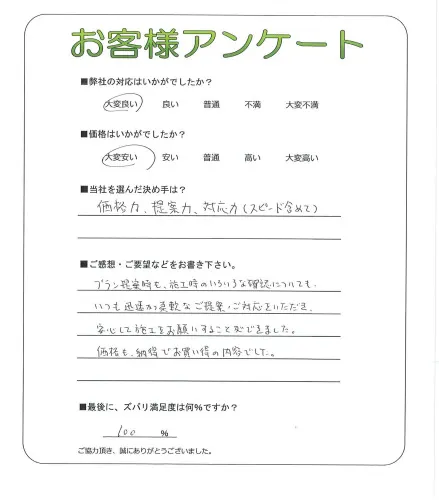 お客様アンケート
■弊社の対応はいかがでしたか？
大変良い 良い 普通 不満 大変不満
■価格はいかがでしたか？
大変安い 安い 普通 高い 大変高い
■当社を選んだ決め手は？
価格力、提案力、対応力(スピード含めて)
■ご感想・ご要望などをお書き下さい。
プラン提案時も、施工時のいろいろな確認についても、
いつも迅速かつ柔軟なご提案、ご対応をいただき、
安心して施工をお願いすることができました。
価格も、納得でお買い得の内容でした。
■最後に、ズバリ満足度は何％ですか？
100 ％
ご協力頂き、誠にありがとうございました。